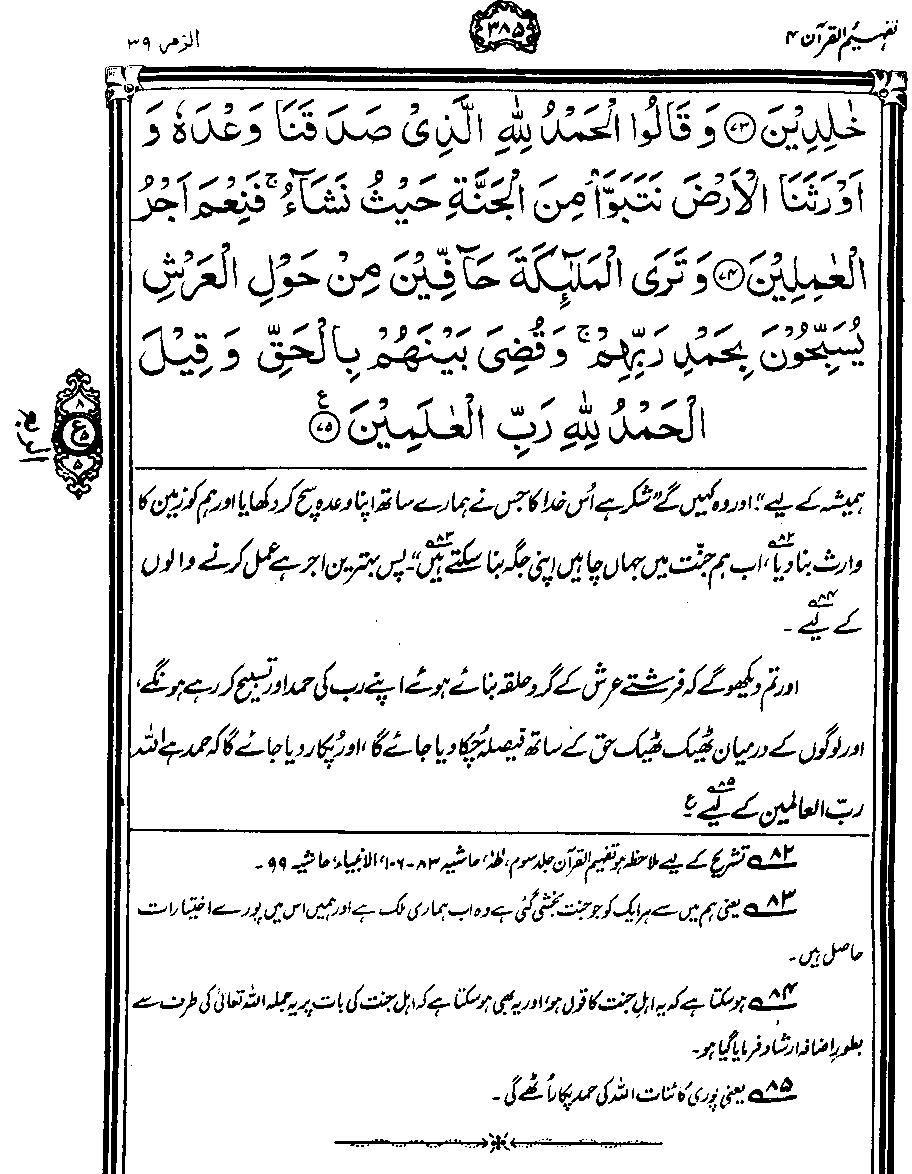 تفہیم القرآن ۴
۳۸۵
الزمر ۳۹
خٰلِدِیْنَ ﴿۷۳﴾ وَ قَالُوا الْحَمْدُ لِلّٰهِ الَّذِیْ صَدَقَنَا وَعْدَهٗ وَ
اَوْرَثَنَا الْاَرْضَ نَتَبَوَّاُ مِنَ الْجَنَّةِ حَیْثُ نَشَآءُ ۚ فَنِعْمَ اَجْرُ
الْعٰمِلِیْنَ ﴿۷۴﴾ وَ تَرَی الْمَلٰٓىِٕكَةَ حَآفِّیْنَ مِنْ حَوْلِ الْعَرْشِ
یُسَبِّحُوْنَ بِحَمْدِ رَبِّهِمْ ۚ وَ قُضِیَ بَیْنَهُمْ بِالْحَقِّ وَ قِیْلَ
الْحَمْدُ لِلّٰهِ رَبِّ الْعٰلَمِیْنَ ﴿۷۵﴾ ع
۸
ع ۵
۵
ہمیشہ کے لیے“۔ اور وہ کہیں گے ”شکر ہے اُس خدا کا جس نے ہمارے ساتھ اپنا وعدہ سچ کر دکھایا اور ہم کو زمین کا
وارث بنا دیا،۸۲ اب ہم جنّت میں جہاں چاہیں اپنی جگہ بنا سکتے ہیں“۔۸۳ پس بہترین اجر ہے عمل کرنے والوں
کے لیے۸۴۔
اور تم دیکھو گے کہ فرشتے عرش کے گرد حلقہ بنائے ہوئے اپنے رب کی حمد اور تسبیح کر رہے ہونگے،
اور لوگوں کے درمیان ٹھیک ٹھیک حق کے ساتھ فیصلہ چُکا دیا جائے گا، اور پُکار دیا جائے گا کہ حمد ہے اللہ
ربّ العالمین کے لیے۸۵ ع
۸۲ تشریح کے لیے ملاحظہ ہو تفہیم القرآن جلد سوم، طٰہٰ، حاشیہ ۸۳-۱۰۶، الانبیاء، حاشیہ ۹۹۔
۸۳ یعنی ہم میں سے ہر ایک کو جو جنت بخشی گئی ہے وہ اب ہماری ملک ہے اور ہمیں اس میں پورے اختیارات
حاصل ہیں۔
۸۴ ہو سکتا ہے کہ یہ اہلِ جنت کا قول ہو، اور یہ بھی ہو سکتا ہے کہ اہل جنت کی بات پر یہ جملہ اللہ تعالیٰ کی طرف سے
بطور اضافہ ارشاد فرمایا گیا ہو۔
۸۵ یعنی پوری کائنات اللہ کی حمد پکار اُٹھے گی۔